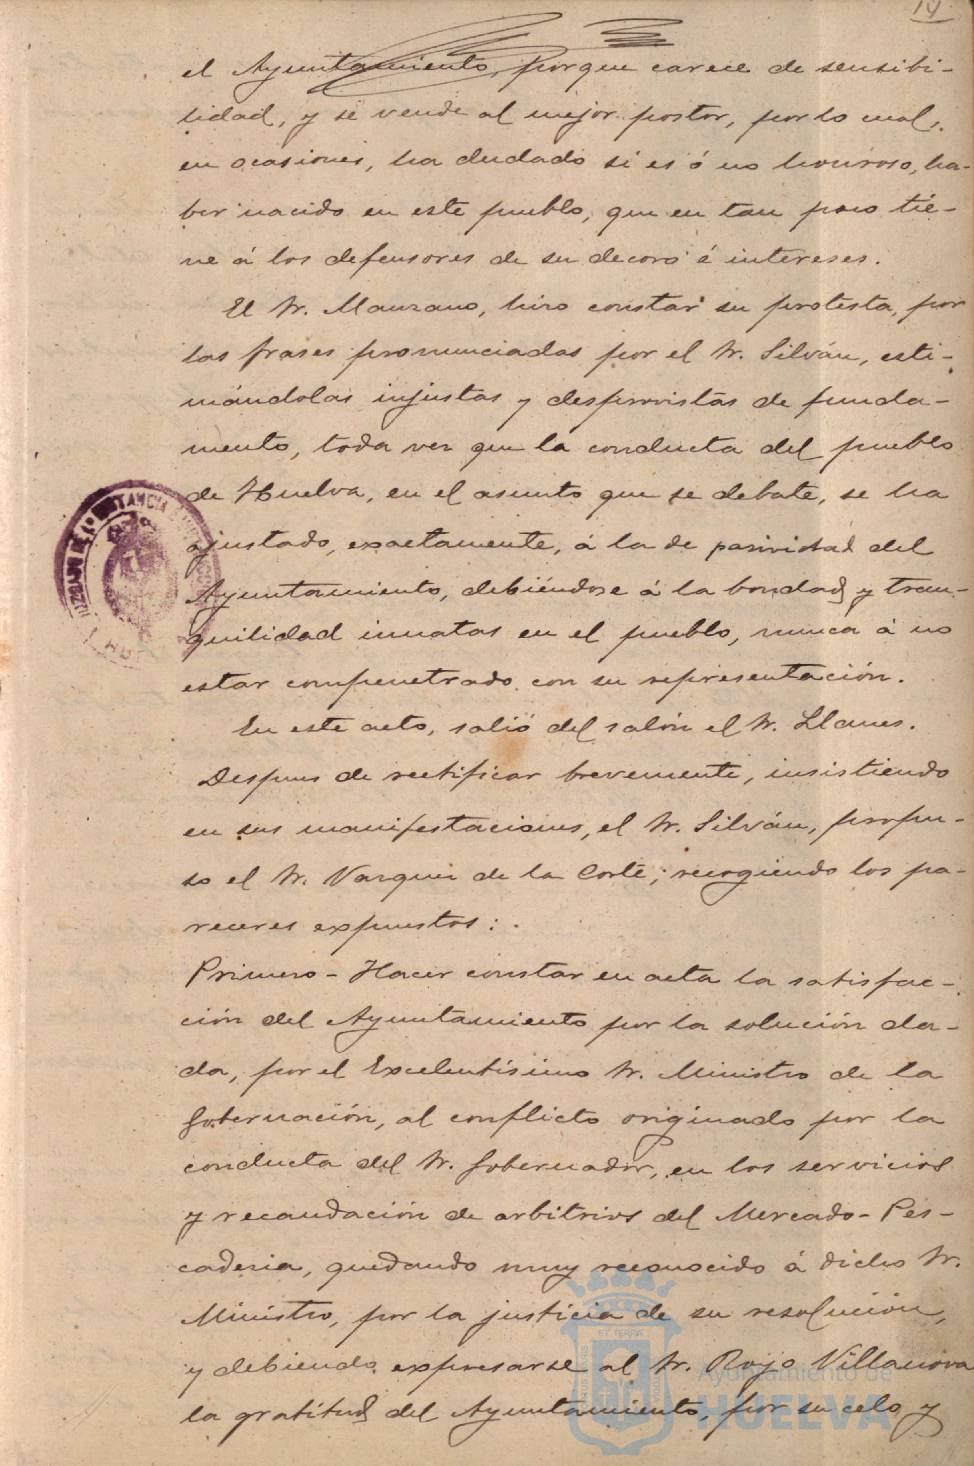 14
el Ayuntamiento, porque carece de sensibi-
lidad, y se vende al mejor postor, por lo cual,
en ocasiones, ha dudado si es ó no honroso, ha-
ber nacido en este pueblo, que en tan poco tie-
ne á los defensores de su decoro é intereses.
El Sr. Manzano, hizo constar su protesta, por
las frases pronunciadas por el Sr. Silván, esti-
mándolas injustas y desprovistas de funda-
mento, toda vez que la conducta del pueblo
de Huelva, en el asunto que se debate, se ha
ajustado, exactamente, á la de pasividad del
Ayuntamiento, debiéndose á la bondad y tran-
quilidad innatas en el pueblo, nunca á no
estar compenetrado con su representación.
En este acto, salió del salón el Sr. Llanes.
Despues de rectificar brevemente, insistiendo
en sus manifestaciones, el Sr. Silván, propu-
so el Sr. Vazquez de la Corte, recogiendo los pa-
receres expuestos:
Primero - Hacer constar en acta la satisfac-
ción del Ayuntamiento por la solución da-
da, por el Excelentísimo Sr. Ministro de la
Gobernación, al conflicto originado por la
conducta del Sr. Gobernador, en los servicios
y recaudación de arbitrios del Mercado-Pes-
caderia, quedando muy reconocido á dicho Sr.
Ministro, por la justicia de su resolución,
y debiendo expresarse al Sr. Rojo Villanova
la gratitud del Ayuntamiento, por su celo y
JUZGADO DE 1ª INSTANCIA
Ayuntamiento de
HUELVA